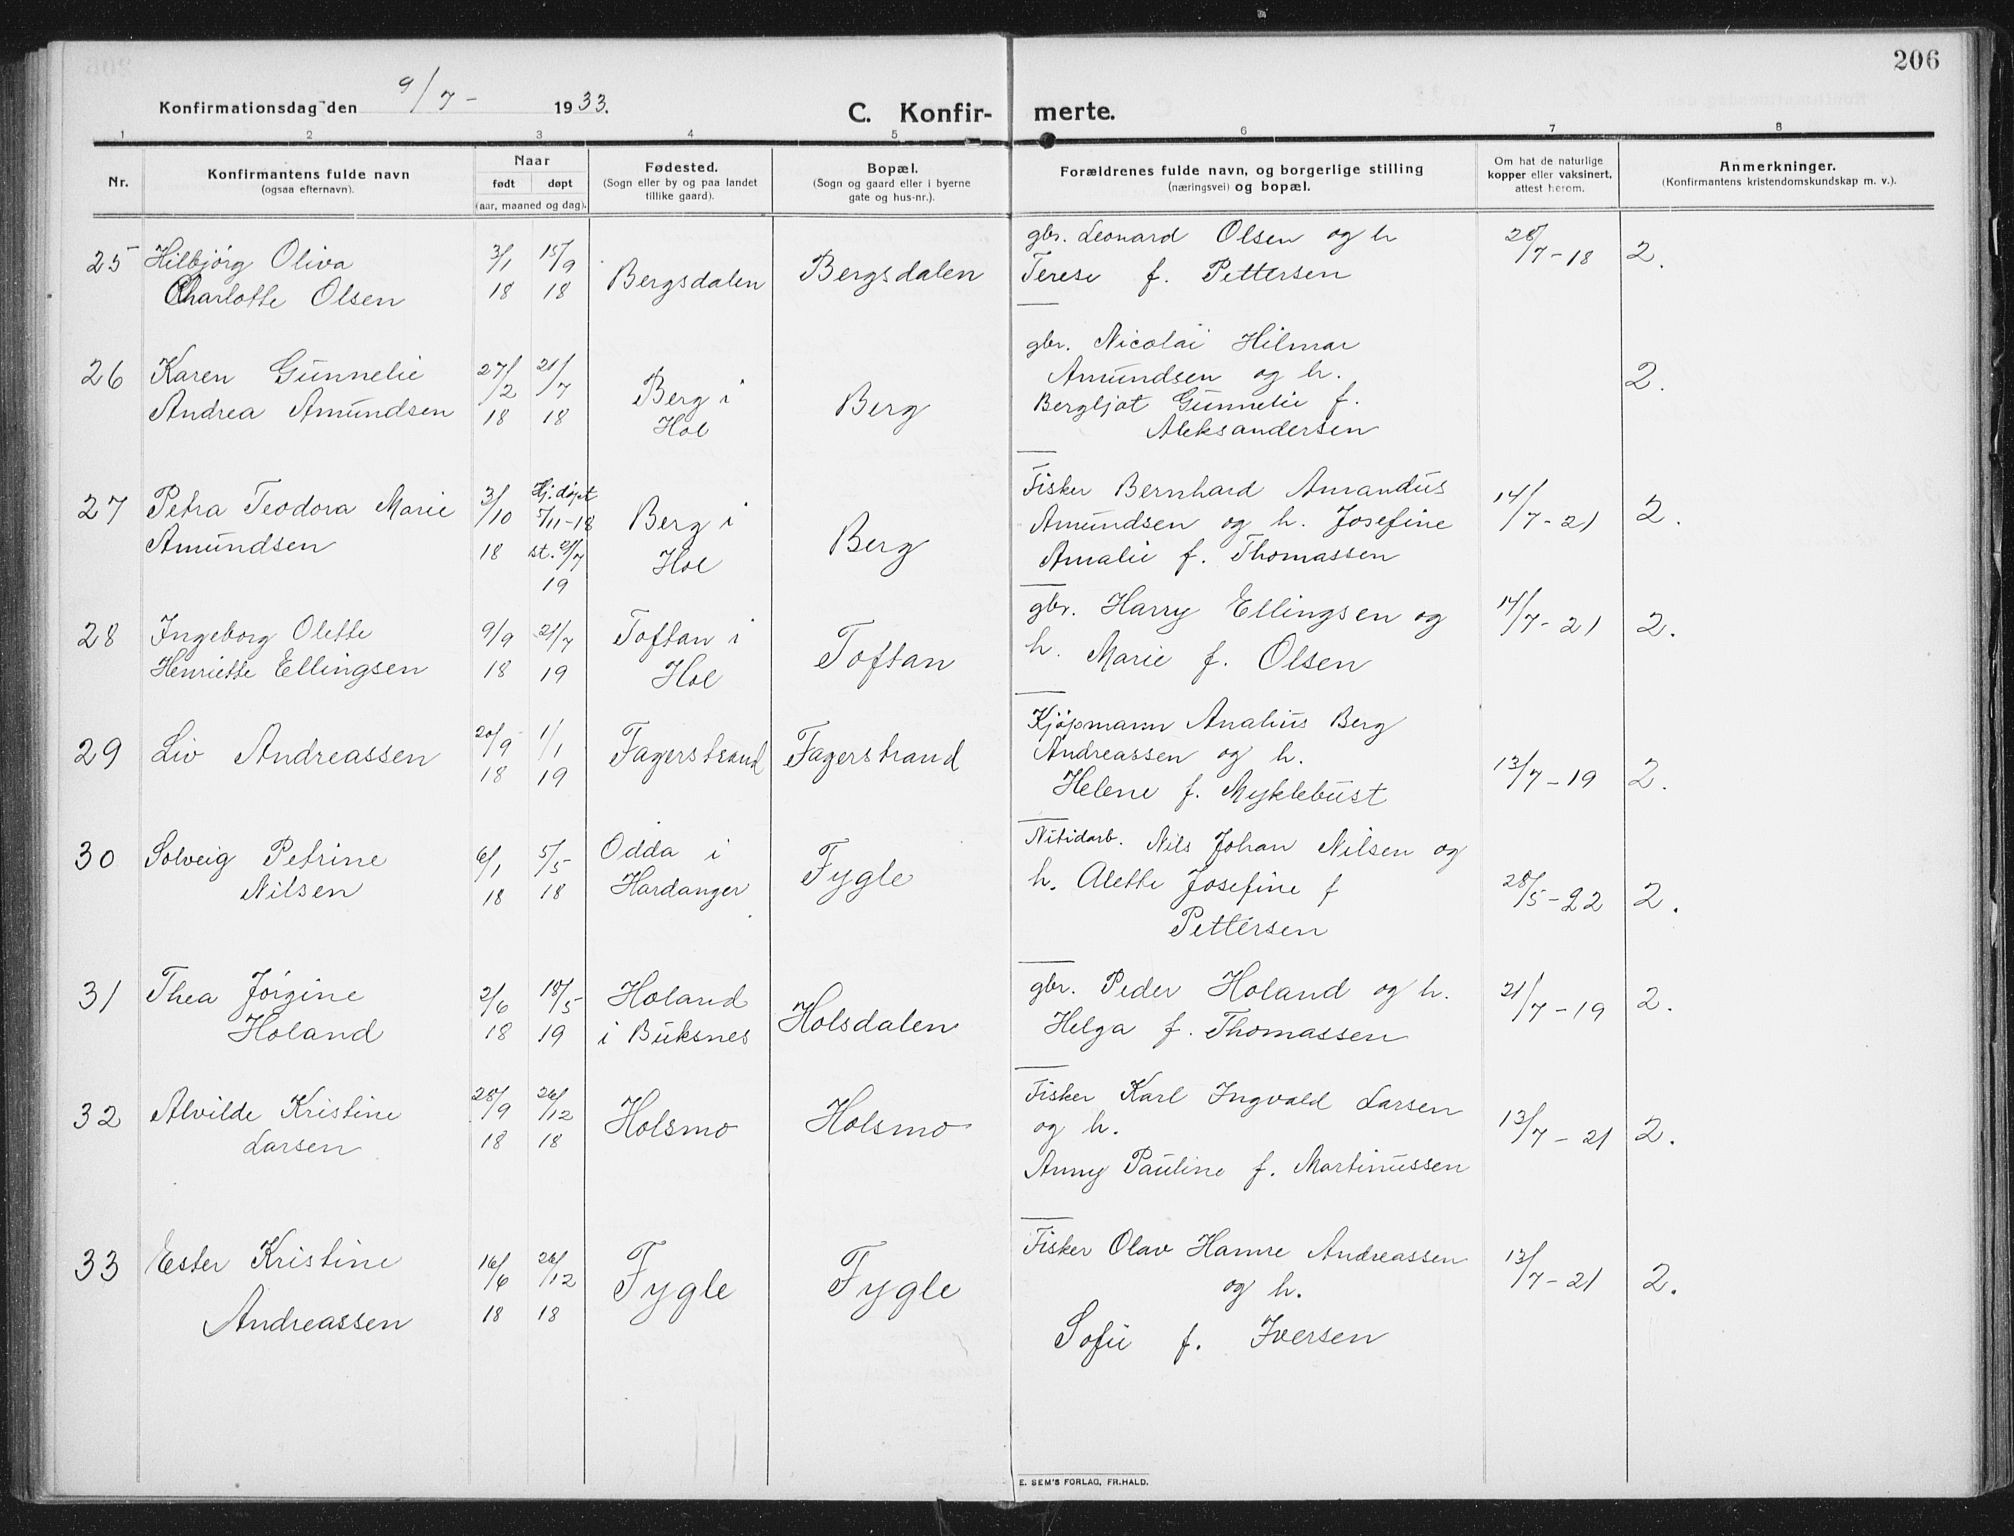 206
Konfirmationsdag den 9/7 - 1933.
C. Konfir- merte.
1 2 3 4 5 6 7 8
Nr.
Konfirmantens fulde navn
(ogsaa efternavn).
Naar
født døpt
(aar, maaned og dag).
Fødested.
(Sogn eller by og paa landet
tillike gaard).
Bopæl.
(Sogn og gaard eller i byerne
gate og hus-nr.).
Forældrenes fulde navn, og borgerlige stilling
(næringsvei) og bopæl.
Om hat de naturlige
kopper eller vaksinert,
attest herom.
Anmerkninger.
(Konfirmantens kristendomskundskap m. v.).
25 Hilbjørg Oliva
Charlotte Olsen
3/1 18
15/9 18
Bergsdalen
Bergsdalen
gbr. Leonard Olsen og h
Terese f. Pettersen
28/7-18
2.
26 Karen Gunnelie
Andrea Amundsen
27/2 18
21/7 18
Berg i
Hol
Berg
gbr. Nicolai Hilmar
Amundsen og h.
Bergljot Gunnelie f.
Aleksandersen
2.
27 Petra Teodora Marie
Amundsen
3/10 18
Hj. døpt
7/11-18
st. 21/7
19
Berg i
Hol
Berg
Fisker Bernhard Amandus
Amundsen og h. Josefine
Amalie f. Thomassen
14/7-21
2.
28 Ingeborg Olette
Henriette Ellingsen
9/9 18
21/7 19
Toftan i
Hol
Toftan
gbr. Harry Ellingsen og
h. Marie f. Olsen
14/7-21
2.
29 Liv Andreassen
20/9 18
1/1 19
Fagerstrand
Fagerstrand
Kjøpmann Analius Berg
Andreassen og h.
Helene f. Myklebust
13/7-19
2.
30 Solveig Petrine
Nilsen
6/1 18
5/5 18
Odda i
Hardanger
Fygle
Nitidarb. Nils Johan Nilsen og
h. Alette Josefine f
Pettersen
28/5-22
2.
31 Thea Jørgine
Holand
2/6 18
18/5 19
Holand
i Buksnes
Holsdalen
gbr. Peder Holand og h.
Helga f. Thomassen
21/7-19
2.
32 Alvilde Kristine
Larsen
28/9 18
26/12 18
Holsmo
Holsmo
Fisker Karl Ingvald Larsen
og h.
Anny Pauline f. Martinussen
13/7-21
2.
33 Ester Kristine
Andreassen
16/6 18
26/12 18
Fygle
Fygle
Fisker Olav Hamre Andreassen
og h.
Sofie f. Iversen
13/7-21
2.
E. SEM'S FORLAG, FR.HALD.